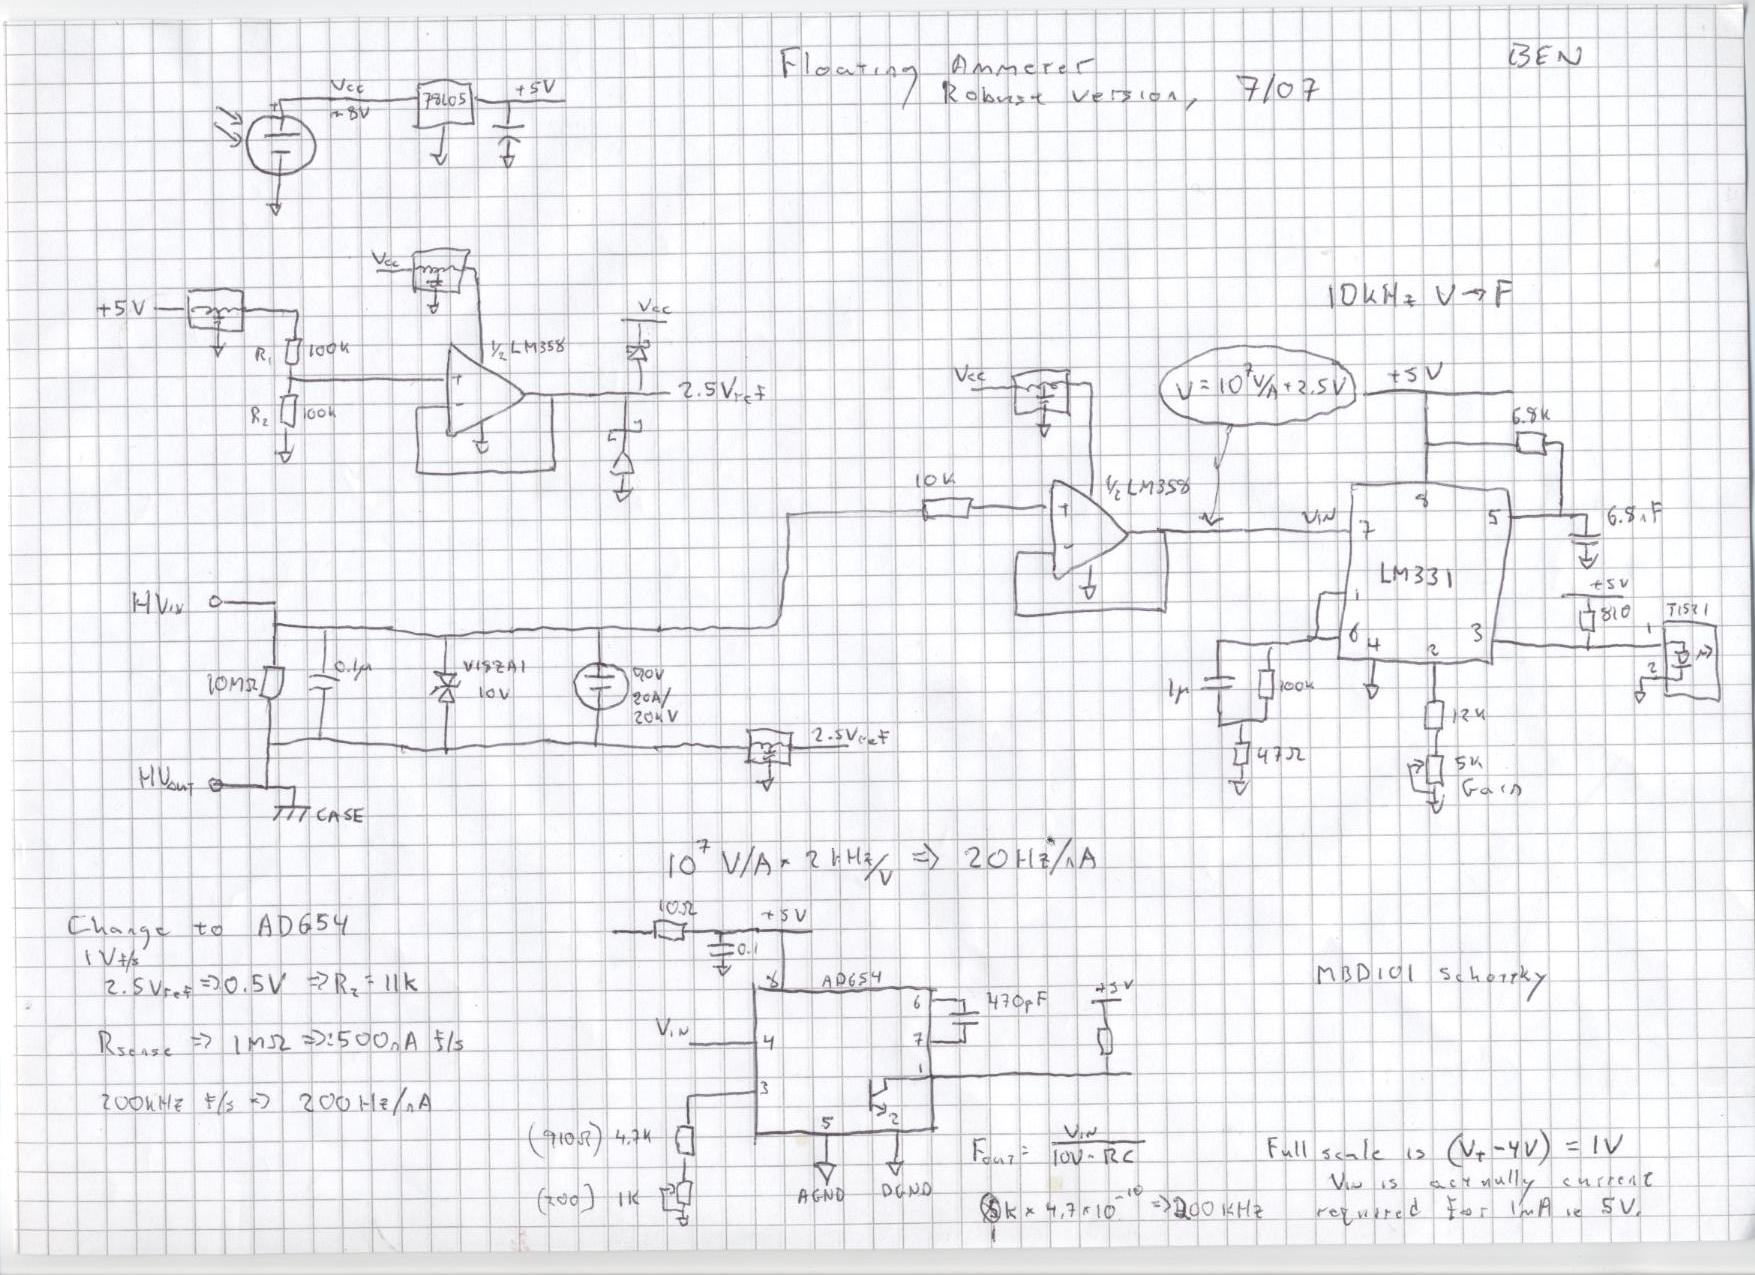 Floating Ammeter
Robust version, 7/07
BEN
Vcc
≈8V
78L05
+5V
+5V
R1 100k
R2 100k
Vcc
1/2 LM358
Vcc
2.5Vref
10kHz V→F
Vcc
V=10^7 V/A+2.5V
+5V
6.8K
10K
1/2 LM358
VIN
7
8
5
6.8nF
LM331
1
6
4
2
3
+5V
810
1
2
1μ
100k
47Ω
12K
5K
Gain
HVin
10MΩ
0.1μ
V18ZA1
10V
90V
20A/
20kV
2.5Vref
HVout
CASE
10^7 V/A × 2kHz/V ⇒ 20Hz/nA
Change to AD654
1V f/s
2.5Vref ⇒ 0.5V ⇒ R2 = 11k
Rsense ⇒ 1MΩ ⇒ ±500nA f/s
200kHz f/s ⇒ 200Hz/nA
10Ω
+5V
0.1
8
AD654
VIN
4
3
6
7
470pF
+5V
1
2
5
(910Ω) 4.7K
(200) 1K
AGND
DGND
MBD101 schottky
Fout = VIN / 10V·RC
1k × 4.7×10^-10 ⇒ 200kHz
Full scale is (V+ -4V) = 1V
Vin is actually current
required for 1mA ie 5V.